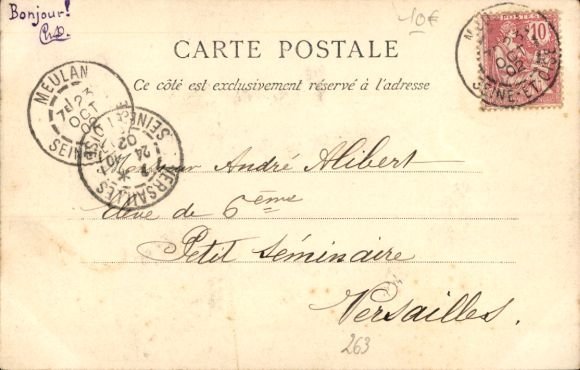 Bonjour!
10€
CARTE POSTALE
Ce côté est exclusivement réservé à l'adresse
POSTES
10
MEULAN
7E 23
OCT
02
SEINE-ET-OISE
VERSAILLES
24
02
SEINE
SEINE-ET-OISE
Monsieur André Alibert
élève de 6ème
Petit Séminaire
Versailles.
263